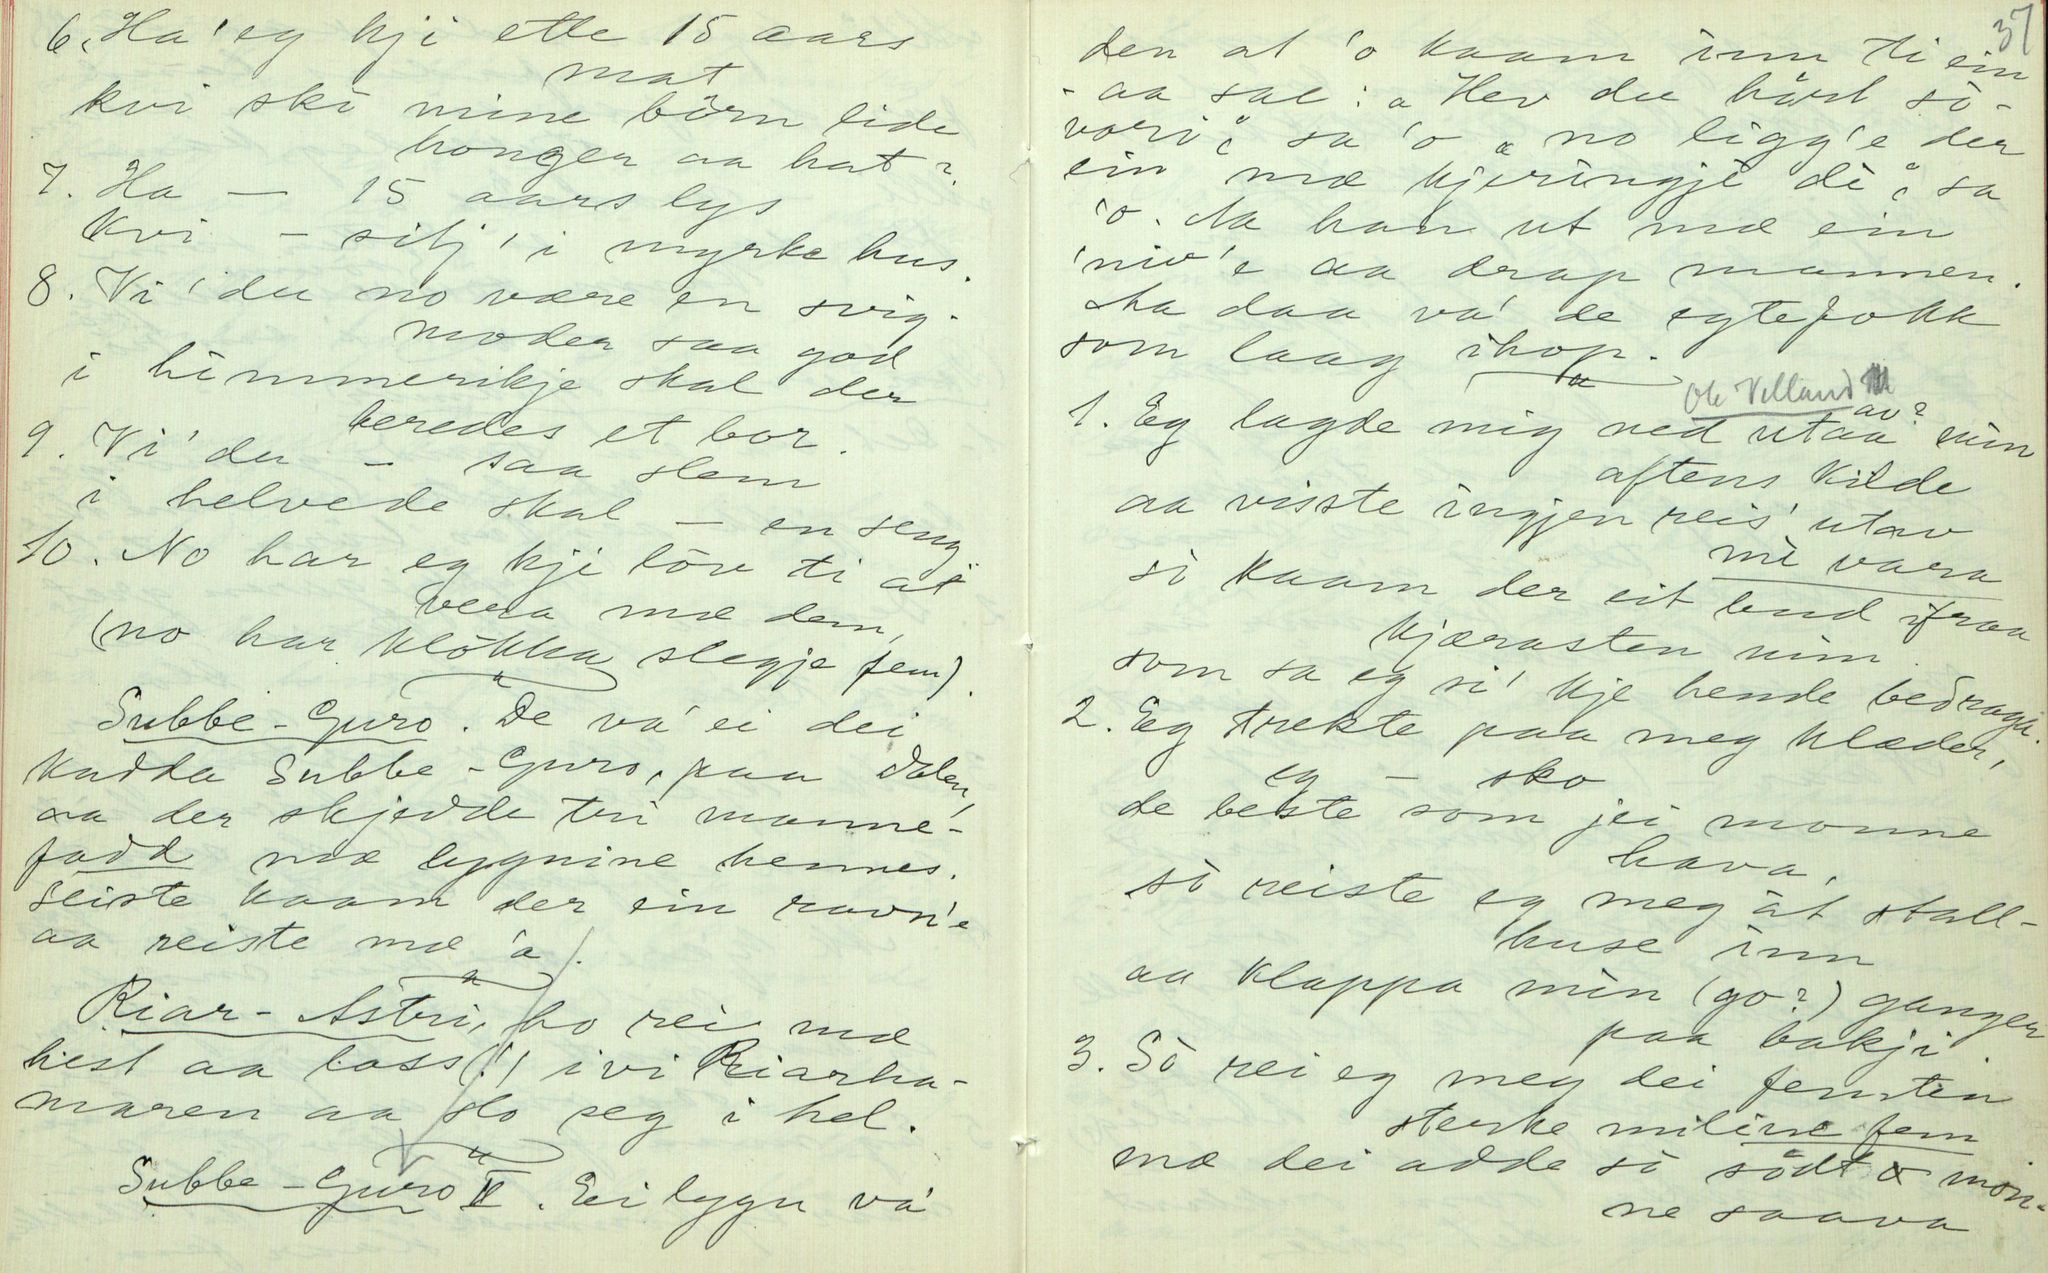 6. Ha' eg kji ette 15 aars
mat
kvi ski mine börn lide
honger aa hat?
7. Ha — 15 aars lys
Kvi — sitj' i myrke hus.
8. Vi' du no være en svig-
moder saa god
i himmerikje skal der
beredes et bor.
9. Vi' du — saa slem
i helvede skal — en seng
10. No har eg kji löv ti at
vera mæ dem,
(no har klökka slegje fem).
Subbe-Guro. De va' ei dei
kadda Subbe-Guro, paa Dalen,
aa der skjedde tri manne-
fadd mæ lygnine hennes.
Seiste kaam der ein ravn'e
aa reiste mæ 'a.
Riar-Astri, ho rei mæ
hest aa lass (!) ivi Riarha-
maren aa slo seg i hel.
Subbe-Guro II. Ei lygn va'
37
den at 'o kaam inn ti ein
aa sae: "Hev du hört so-
vori", sa 'o "no ligg'e der
ein mæ kjeringji di", sa
'o. Sa han ut mæ ein
'niv'e aa drap mannen.
Sa daa va' de egtefokk
som laag ihop.
Ole Villand
1. Eg lagde mig ned utaa av? min
aftens kilde
aa visste ingjen reis' utav
mi vara
si kaam der eit bud ifraa
kjærasten min
som sa eg si' kje hende bedragji.
2. Eg trekte paa meg klæder,
eg — sko
de beste som jei monne
hava,
så reiste eg meg åt stall-
huse inn
aa klappa min (go?) ganger
paa bakji.
3. Så rei eg meg dei femten
sterke miline fem
mæ dei adde så södt mon-
ne saava